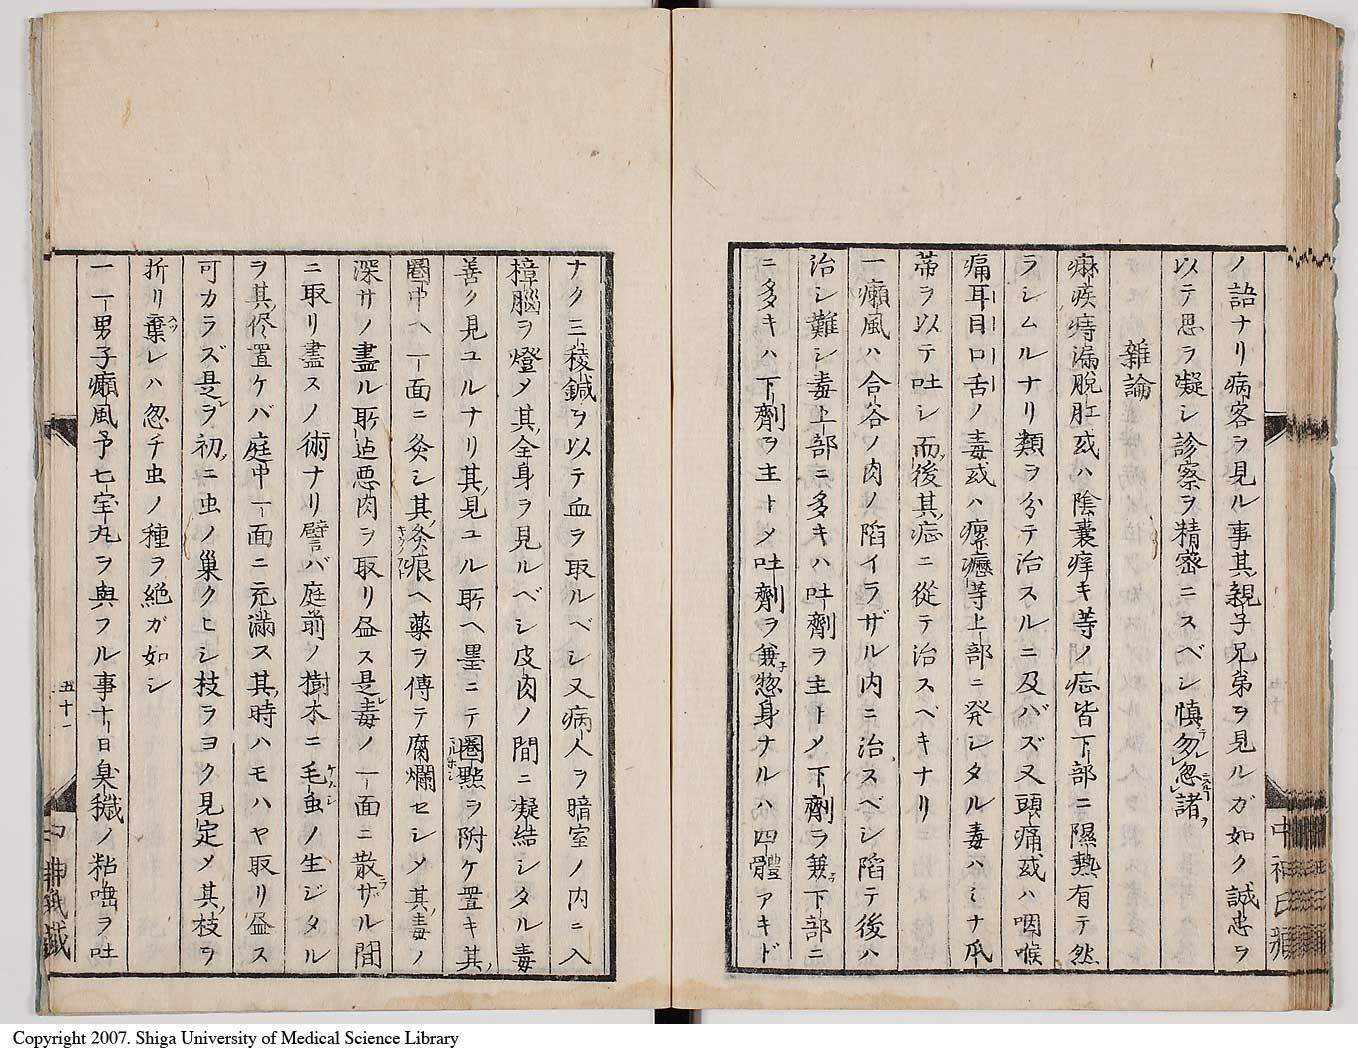 ノ語ナリ病客ヲ見ル事其親子兄弟ヲ見ルガ如ク誠忠ヲ
以テ思ヲ凝シ診察ヲ精密ニスベシ慎勿忽諸
雜論
痳疾痔漏脱肛或ハ陰嚢痒キ等ノ症皆下部ニ隰熱有テ然
ラシムルナリ類ヲ分テ治スルニ及バズ又頭痛或ハ咽喉
痛耳目口舌ノ毒或ハ瘰癧等上部ニ発シタル毒ハミナ瓜
蒂ヲ以テ吐シ而後其症ニ從テ治スベキナリ
一癩風ハ合谷ノ肉ノ陷イラザル内ニ治スベシ陷テ後ハ
治シ難シ毒上部ニ多キハ吐劑ヲ主トメ下劑ヲ兼下部ニ
ニ多キハ下劑ヲ主トメ吐劑ヲ兼惣身ナルハ四體アキド
中神氏藏
ナク三稜鍼ヲ以テ血ヲ取ルベシ又病人ヲ暗室ノ内ニ入
樟腦ヲ燈メ其全身ヲ見ルベシ皮肉ノ間ニ凝結シタル毒
善ク見ユルナリ其見ユル所ヘ墨ニテ圏點ヲ附ケ置キ其
圏中ヘ一面ニ灸シ其灸痕ヘ藥ヲ傳テ腐爛セシメ其毒ノ
深サノ盡ル所迠悪肉ヲ取リ尽ス是毒ノ一面ニ散ザル間
ニ取リ盡スノ術ナリ譬バ庭前ノ樹木ニ毛虫ノ生ジタル
ヲ其侭置ケバ庭中一面ニ充滿ス其時ハモハヤ取リ尽ス
可カラズ是ヲ初ニ虫ノ巢クヒシ枝ヲヨク見定メ其枝ヲ
折リ棄レハ忽チ虫ノ種ヲ絶ガ如シ
一一男子癩風予七宝丸ヲ與フル事十日臭穢ノ粘唾ヲ吐
五十一
中神氏藏
Copyright 2007. Shiga University of Medical Science Library